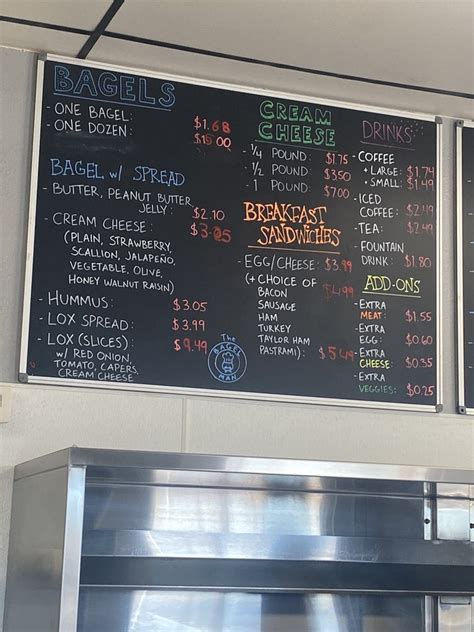 BAGELS
- ONE BAGEL: $1.68
- ONE DOZEN: $15.00
BAGEL w/ SPREAD
- BUTTER, PEANUT BUTTER
JELLY: $2.10
- CREAM CHEESE: $3.25
(PLAIN, STRAWBERRY,
SCALLION, JALAPEÑO,
VEGETABLE, OLIVE,
HONEY WALNUT RAISIN)
- HUMMUS: $3.05
- LOX SPREAD: $3.99
- LOX (SLICES): $9.49
W/ RED ONION,
TOMATO, CAPERS,
CREAM CHEESE
The
BAGEL
MAN
CREAM
CHEESE
- 1/4 POUND: $1.75
- 1/2 POUND: $3.50
- 1 POUND: $7.00
BREAKFAST
SANDWICHES
- EGG/CHEESE: $3.99
(+ CHOICE OF
BACON
SAUSAGE
HAM
TURKEY
TAYLOR HAM
PASTRAMI)
DRINKS
- COFFEE
• LARGE: $1.74
• SMALL: $1.49
- ICED
COFFEE: $2.49
- TEA: $2.49
- FOUNTAIN
DRINK: $1.80
ADD-ONS
- EXTRA
MEAT: $1.55
- EXTRA
EGG: $0.60
- EXTRA
CHEESE: $0.35
- EXTRA
VEGGIES: $0.25